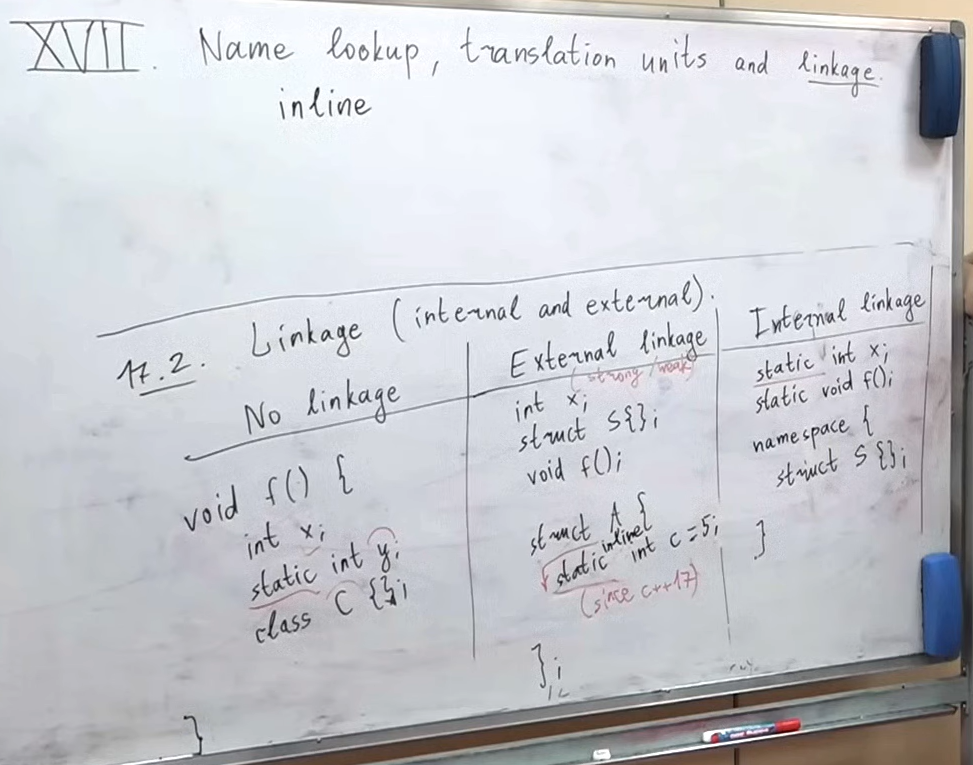 XVII. Name lookup, translation units and linkage.
inline
17.2. Linkage (internal and external).
No linkage
void f() {
int x;
static int y;
class C {};
}
External linkage
(strong/weak)
int x;
struct S{};
void f();
struct A {
static inline int c = 5;
(since c++17)
};
Internal linkage
static int x;
static void f();
namespace {
struct S {};
}